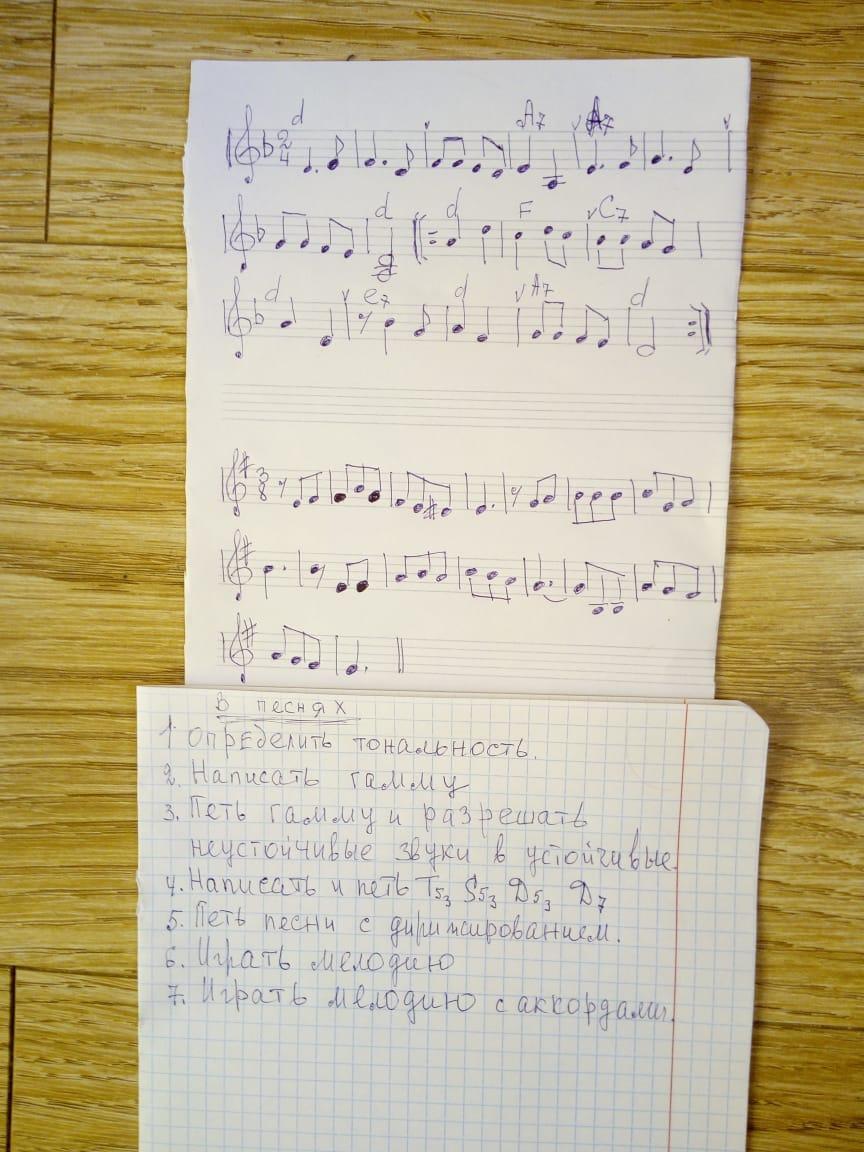 d A7 A7
2
4
d d F C7
d C7 d A7 d
3
8
В песнях
1 Определить тональность.
2. Написать гамму
3. Петь гамму и разрешать
неустойчивые звуки в устойчивые.
4. Написать и петь T53 S53 D53 D7
5. Петь песни с дирижированием.
6. Играть мелодию
7. Играть мелодию с аккордами.